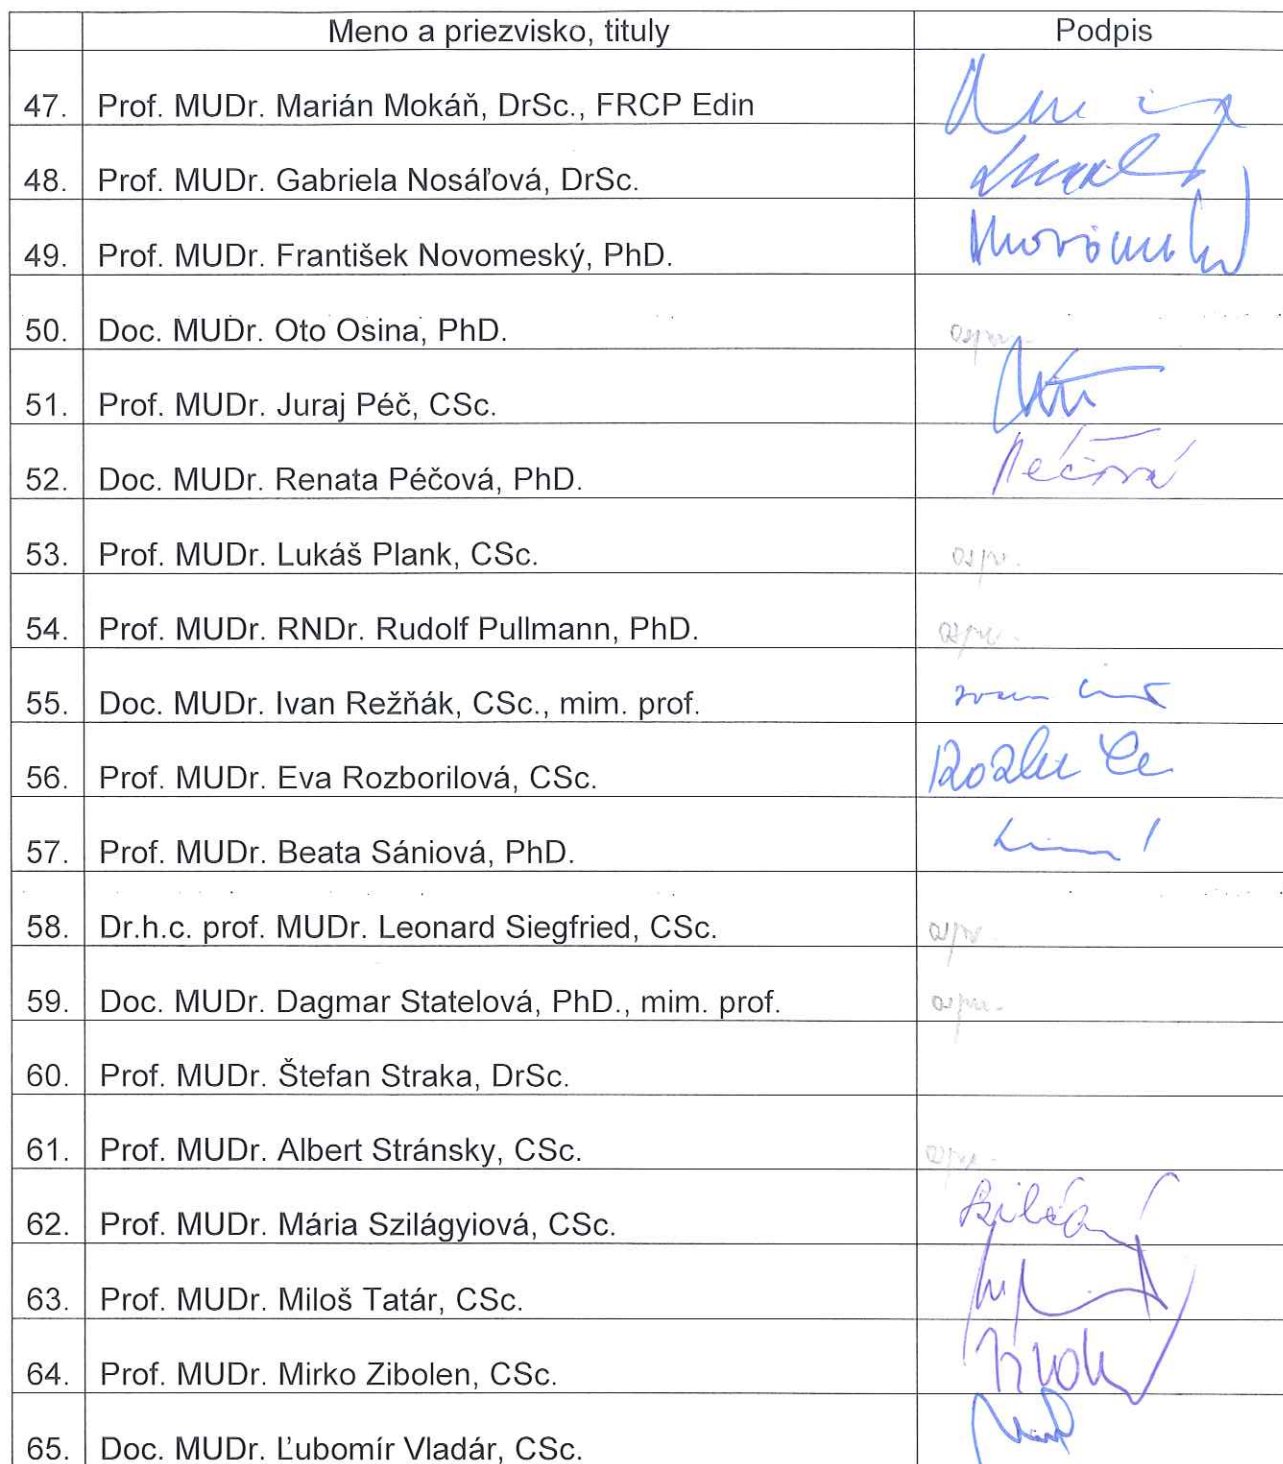 Meno a priezvisko, tituly Podpis
47. Prof. MUDr. Marián Mokáň, DrSc., FRCP Edin
48. Prof. MUDr. Gabriela Nosáľová, DrSc.
49. Prof. MUDr. František Novomeský, PhD.
50. Doc. MUDr. Oto Osina, PhD. ospr.
51. Prof. MUDr. Juraj Péč, CSc.
52. Doc. MUDr. Renata Péčová, PhD. Péčová
53. Prof. MUDr. Lukáš Plank, CSc. ospr.
54. Prof. MUDr. RNDr. Rudolf Pullmann, PhD. ospr.
55. Doc. MUDr. Ivan Režňák, CSc., mim. prof.
56. Prof. MUDr. Eva Rozborilová, CSc.
57. Prof. MUDr. Beata Sániová, PhD.
58. Dr.h.c. prof. MUDr. Leonard Siegfried, CSc. ospr.
59. Doc. MUDr. Dagmar Statelová, PhD., mim. prof. ospr.
60. Prof. MUDr. Štefan Straka, DrSc.
61. Prof. MUDr. Albert Stránsky, CSc. ospr.
62. Prof. MUDr. Mária Szilágyiová, CSc.
63. Prof. MUDr. Miloš Tatár, CSc.
64. Prof. MUDr. Mirko Zibolen, CSc.
65. Doc. MUDr. Ľubomír Vladár, CSc.